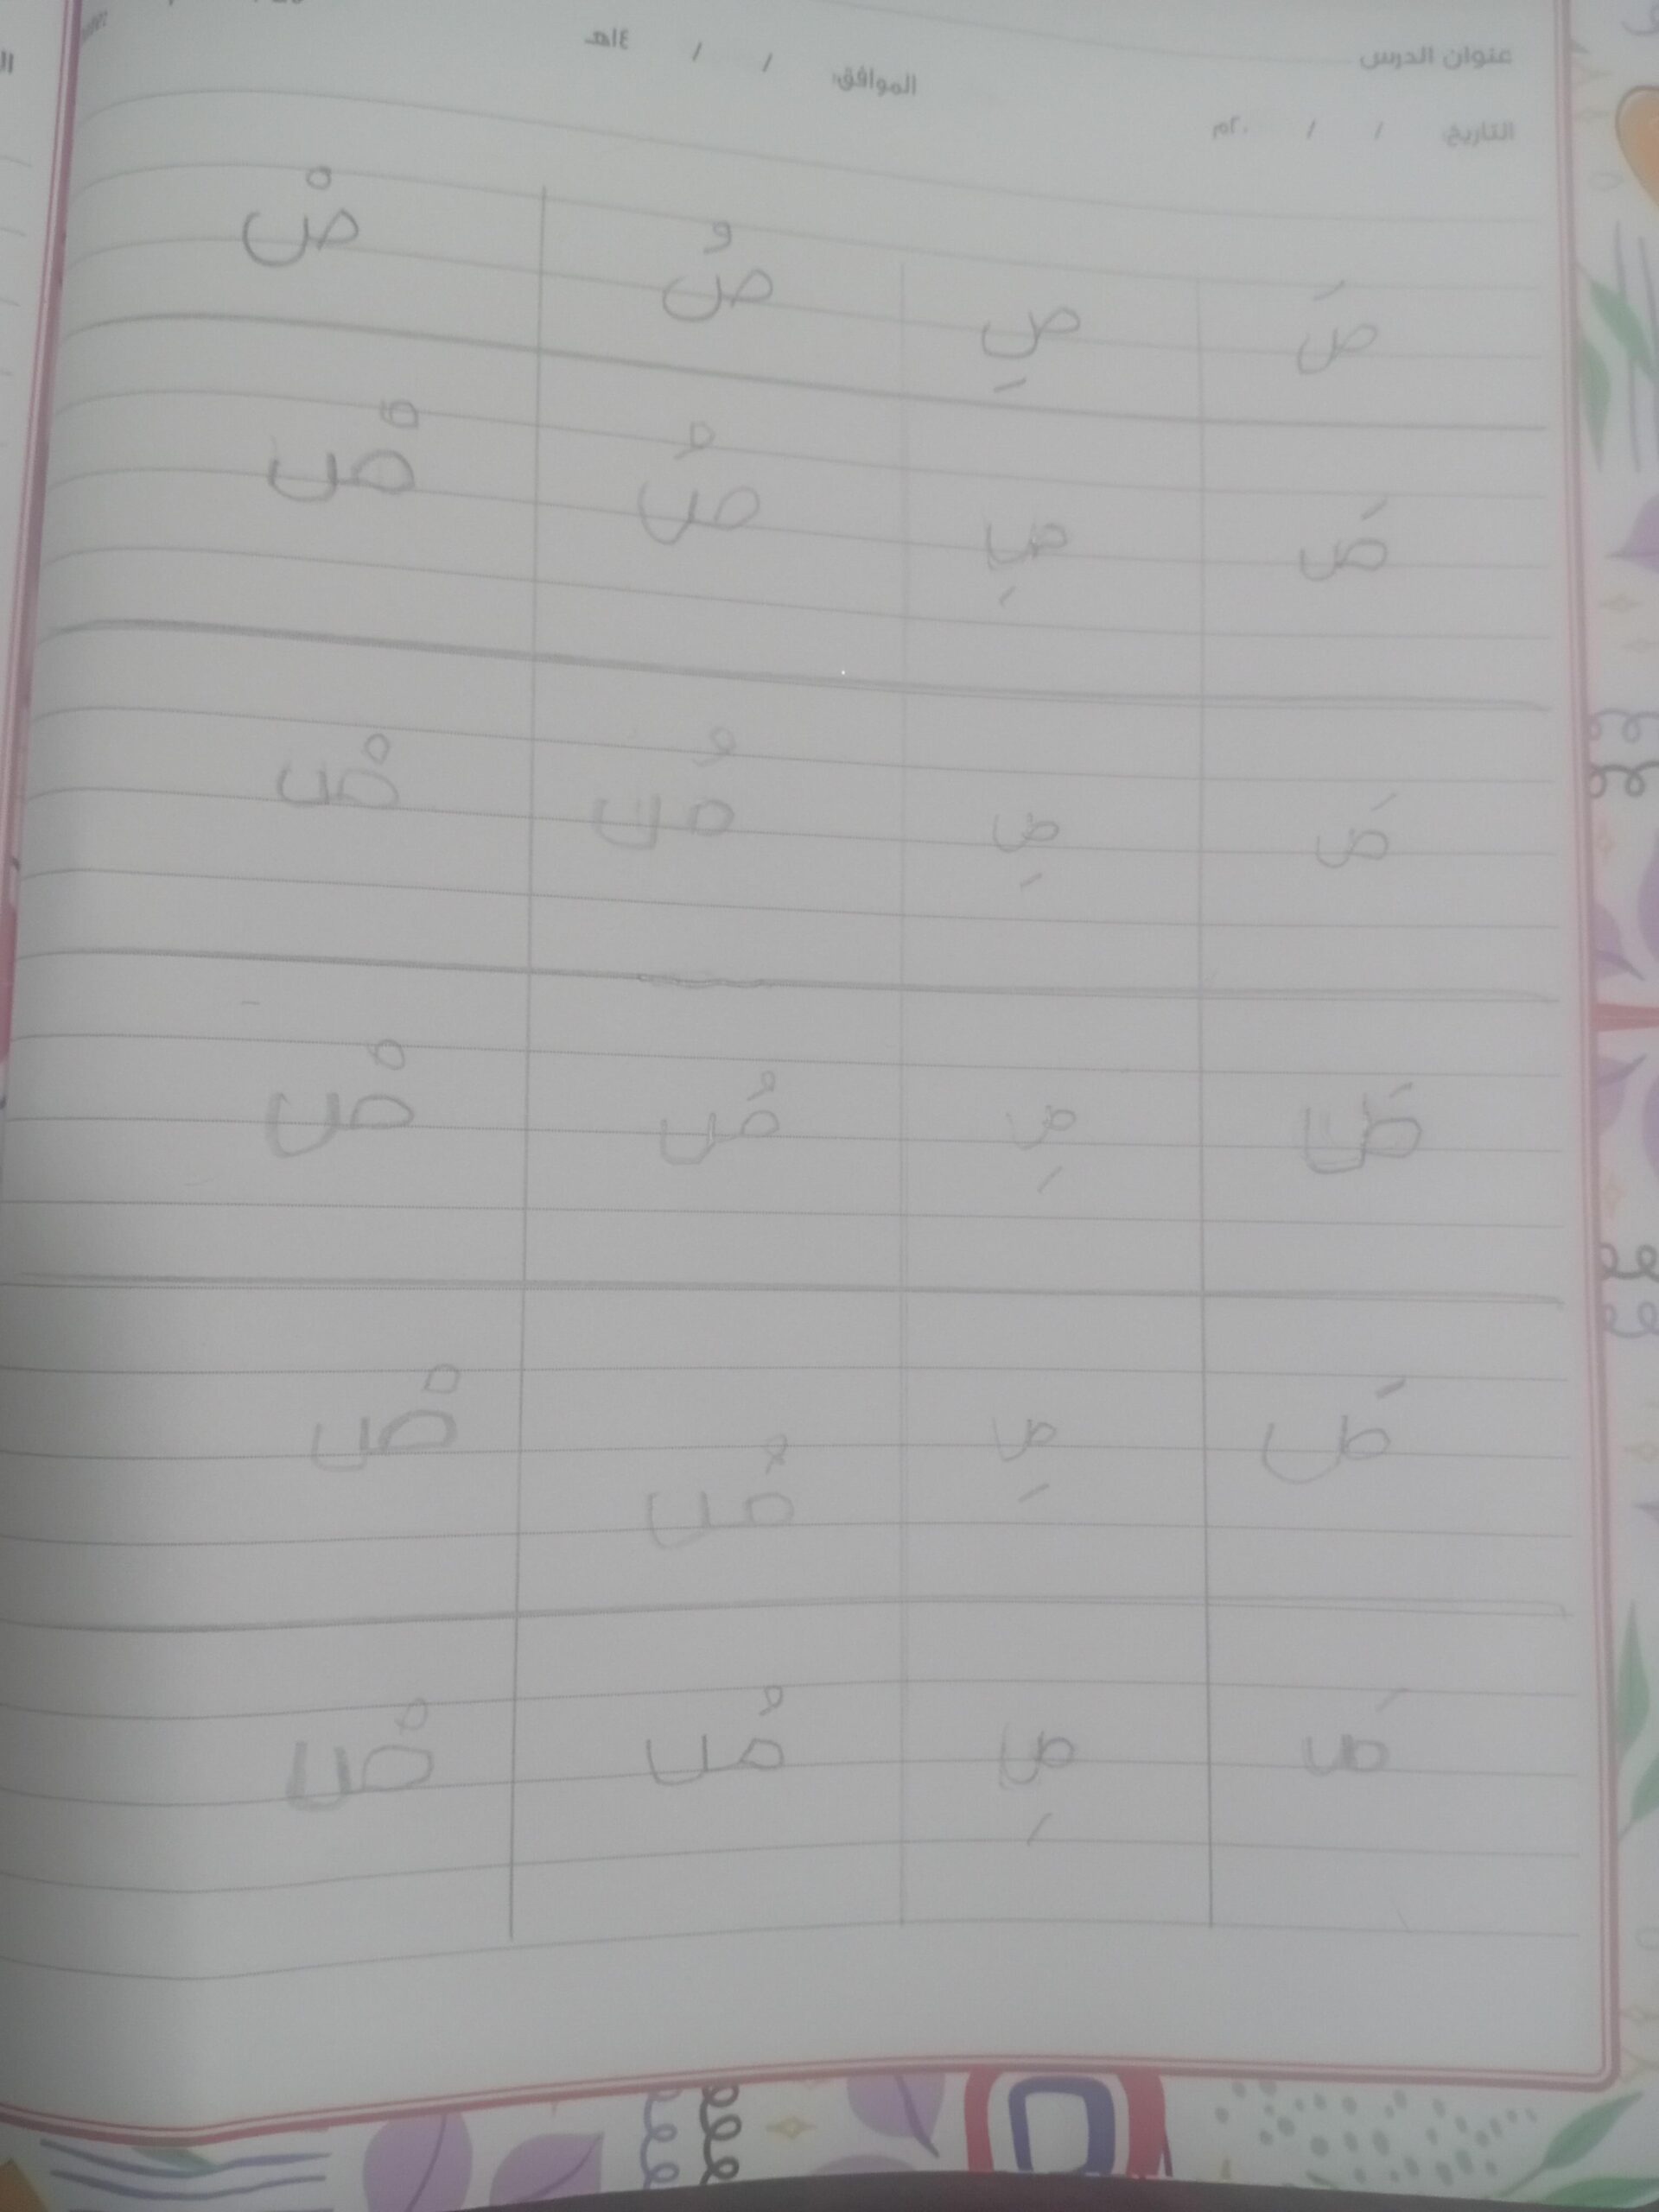 عنوان الدرس
التاريخ / / ٢٠م الموافق: / / ١٤هـ
صَ صِ صُ صْ
صَ صِ صُ صْ
صَ صِ صُ صْ
صَ صِ صُ صْ
صَ صِ صُ صْ
صَ صِ صُ صْ